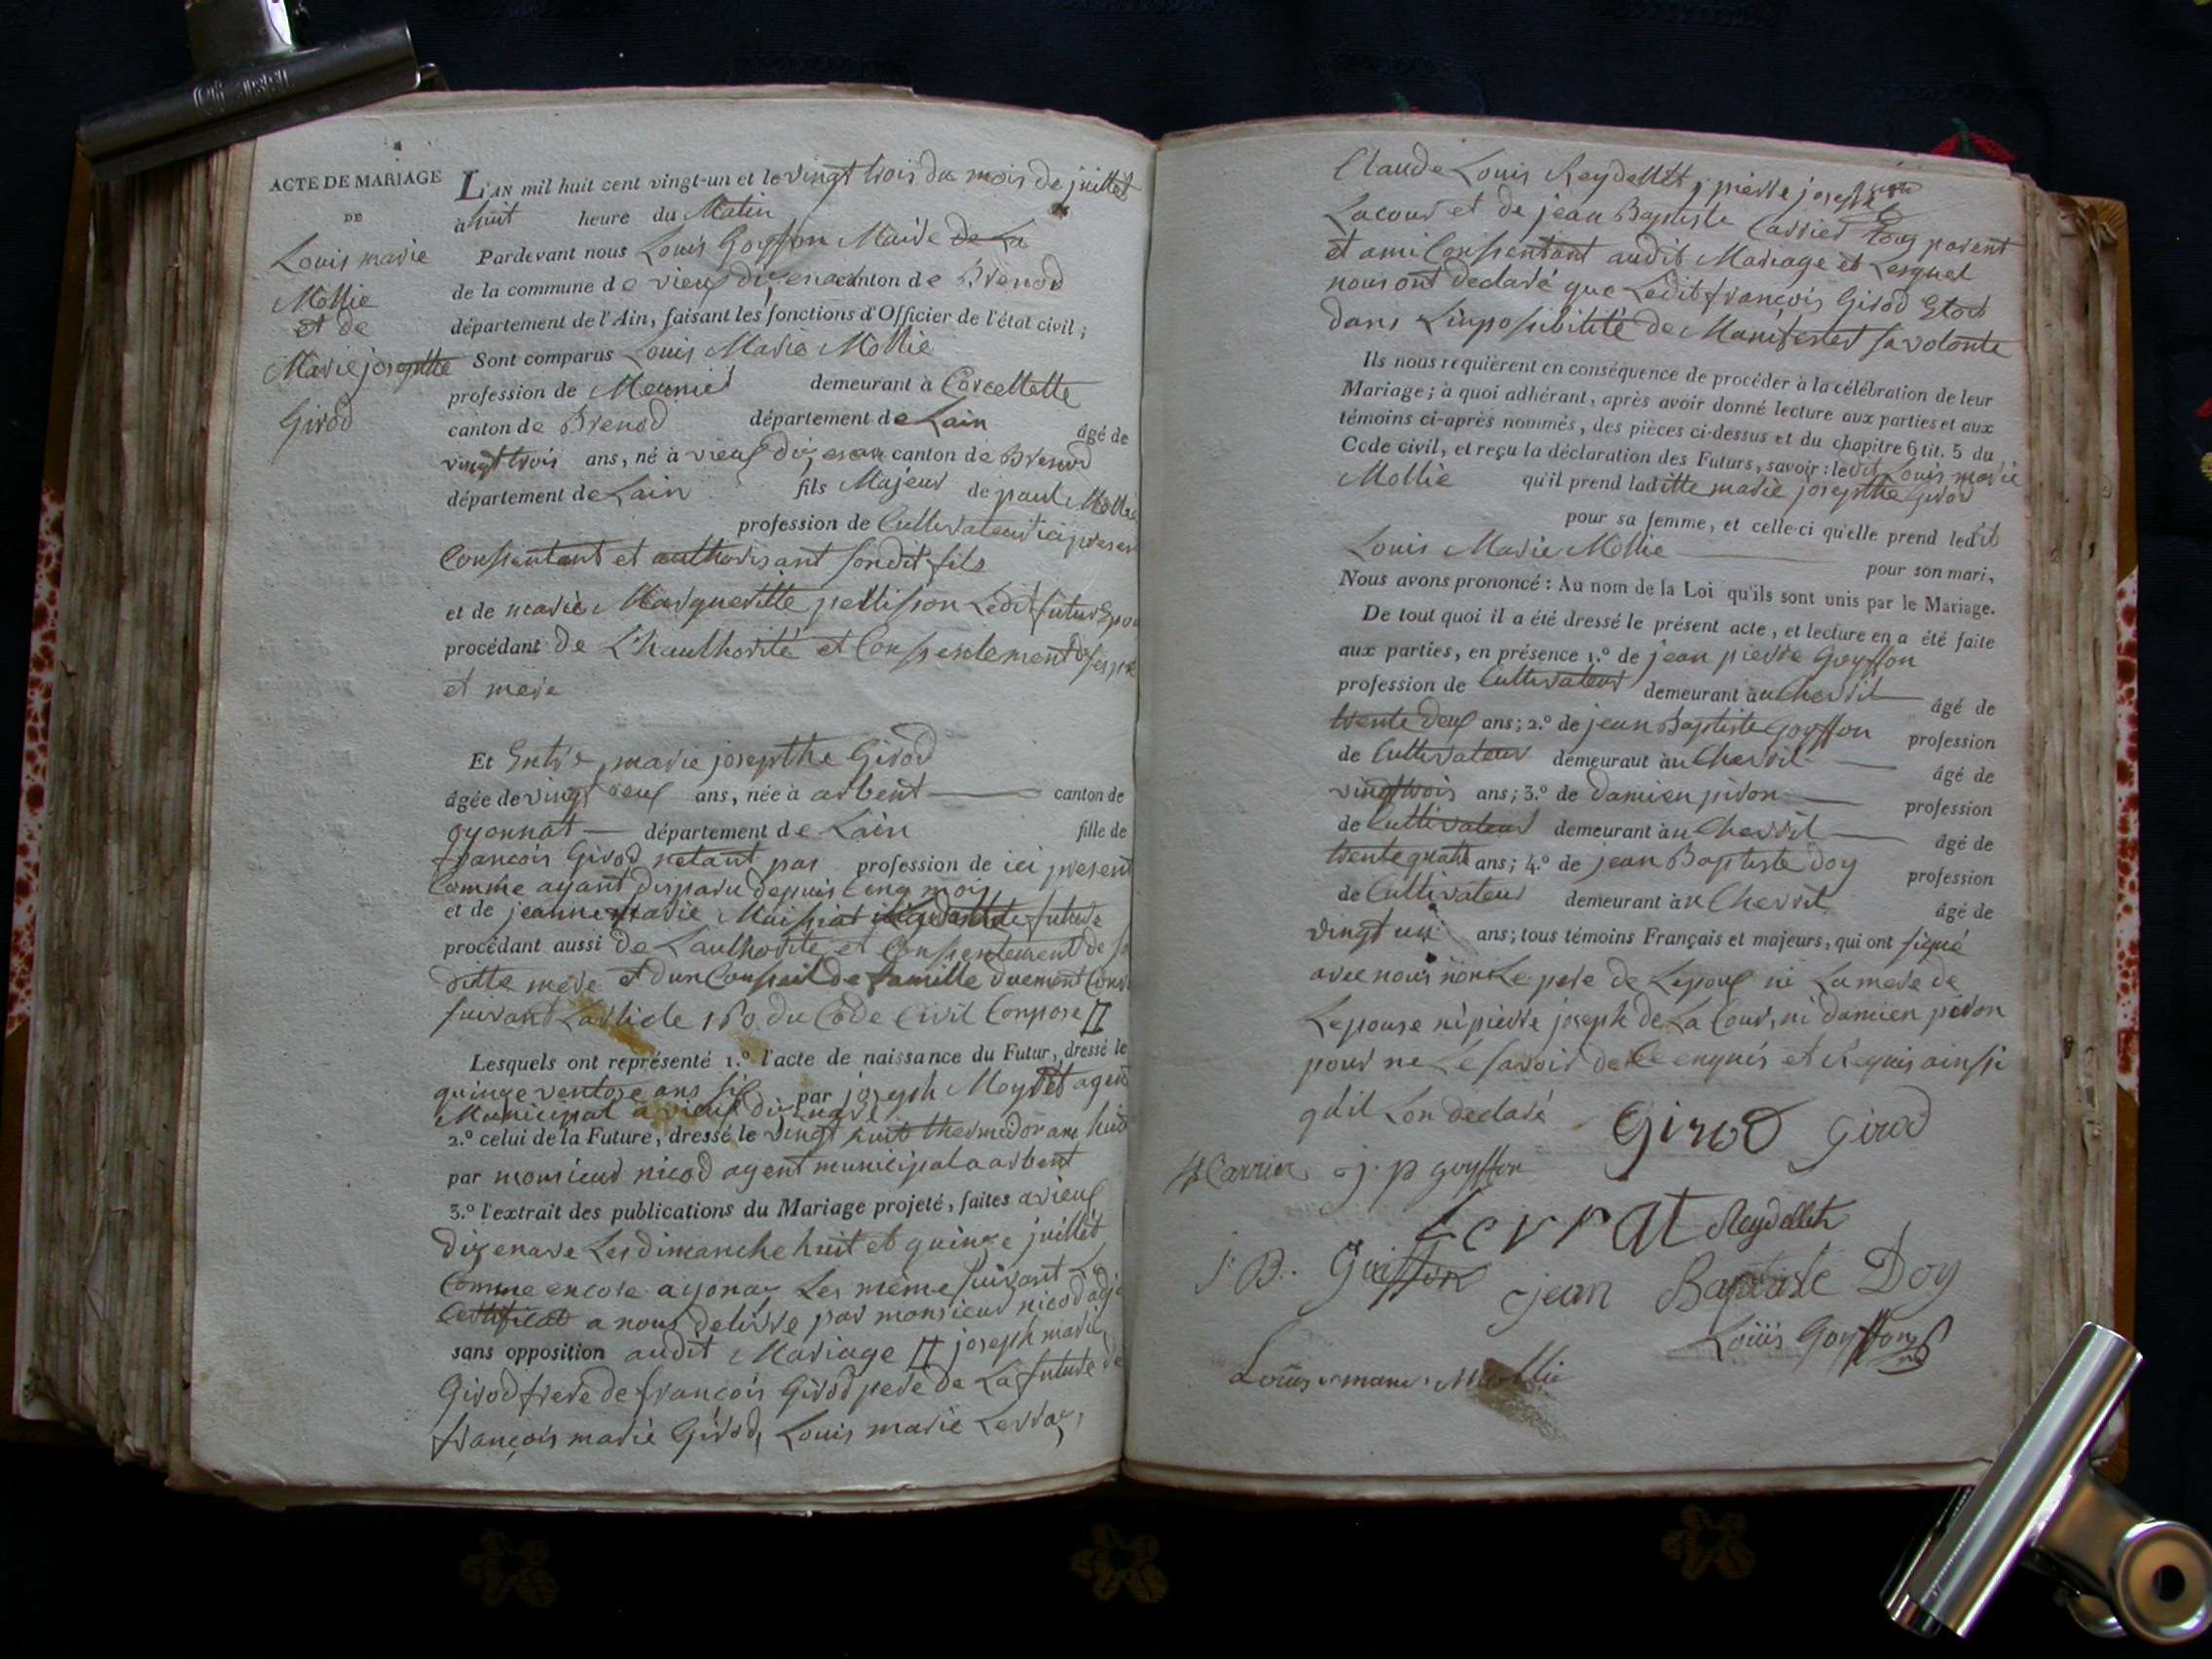 ACTE DE MARIAGE
DE
Louis marie
Mollie
et de
Marie josepthe
Girod
L'AN mil huit cent vingt-un et le vingt trois du mois de juillet
à huit heure du Matin
Pardevant nous Louis Goyffon Maire de La
de la commune de vieux dizenave canton de Brenod
département de l'Ain, faisant les fonctions d'Officier de l'état civil;
Sont comparus Louis Marie Mollie
profession de Meunier demeurant à Corcellette
canton de Brenod département de Lain âgé de
vingt trois ans, né à vieux dizenave canton de Brenod
département de Lain fils Majeur de paul Mollie
profession de Cultivateur ici present
Consentant et authorisant sondit fils
et de marie Margueritte pellisson Ledit futur Epou
procédant de L'haulthorité et Consentement de ses pere
et mere
Et Entre marie josepthe Girod
âgée de vingt deux ans, née à arbent canton de
oyonnat département de Lain fille de
francois Girod netant pas profession de ici present
Comme ayant disparu depuis Cinq mois
et de jeanne Marie Maissiat future
procédant aussi de Laulthorité et Consentement de sa
ditte mere et dun Conseil de famille duement Conv
suivant Larticle 160 du Code Civil Conpose #
Lesquels ont représenté 1.° l'acte de naissance du Futur, dressé le
quinze ventose ans six par joseph Moyret agent
Municipal a vieux dizenave
2.° celui de la Future, dressé le vingt huit thermidor ans huit
par monsieur nicod agent municipal a arbent
3.° l'extrait des publications du Mariage projeté, faites a vieux
dizenave Les dimanche huit et quinze juillet
Comme encore a yonax Les même suivant Le
Certificat a nous delivre par monsieur nicod adjt
sans opposition audit Mariage # joseph marie
Girod frere de francois Girod pere de La future de
françois marie Girod, Louis marie Levrat,
Claude Louis Reydellet, pierre joseph
Lacour et de jean Baptiste Carrier tous parent
et ami Consentant audit Mariage et Lesquel
nous ont declaré que Ledit françois Girod Etoit
dans Linposibilité de Manifester sa volonte
Ils nous requièrent en conséquence de procéder à la célébration de leur
Mariage; à quoi adhérant, après avoir donné lecture aux parties et aux
témoins ci-après nommés, des pièces ci-dessus et du chapitre 6 tit. 5 du
Code civil, et reçu la déclaration des Futurs, savoir: ledit Louis marie
Mollie qu'il prend laditte marie josepthe Girod
pour sa femme, et celle-ci qu'elle prend ledit
Louis Marie Mollie pour son mari,
Nous avons prononcé: Au nom de la Loi qu'ils sont unis par le Mariage.
De tout quoi il a été dressé le présent acte, et lecture en a été faite
aux parties, en présence 1.° de jean pierre Goyffon
profession de Cultivateur demeurant àu Chevril âgé de
trente deux ans; 2.° de jean Baptiste Goyffon profession
de Cultivateur demeurant àu Chevril âgé de
vingttrois ans; 3.° de damien piron profession
de Cultivateur demeurant àu Chevril âgé de
trente quatre ans; 4.° de jean Baptiste doy profession
de Cultivateur demeurant àu Chevril âgé de
vingt un ans; tous témoins Français et majeurs, qui ont signé
avec nous non Le pere de Lepoux ni La mere de
Lepouse ni pierre joseph de La Cour, ni damien piron
pour ne Le savoir de Ce enquis et Requis ainsi
qu'il Lon declaré
Girod Girod
Carrier j. p goyffon
Levrat Reydellet
J. B. Goiffon jean Baptiste Doy
Louis Goyffon
Louis marie Mollie